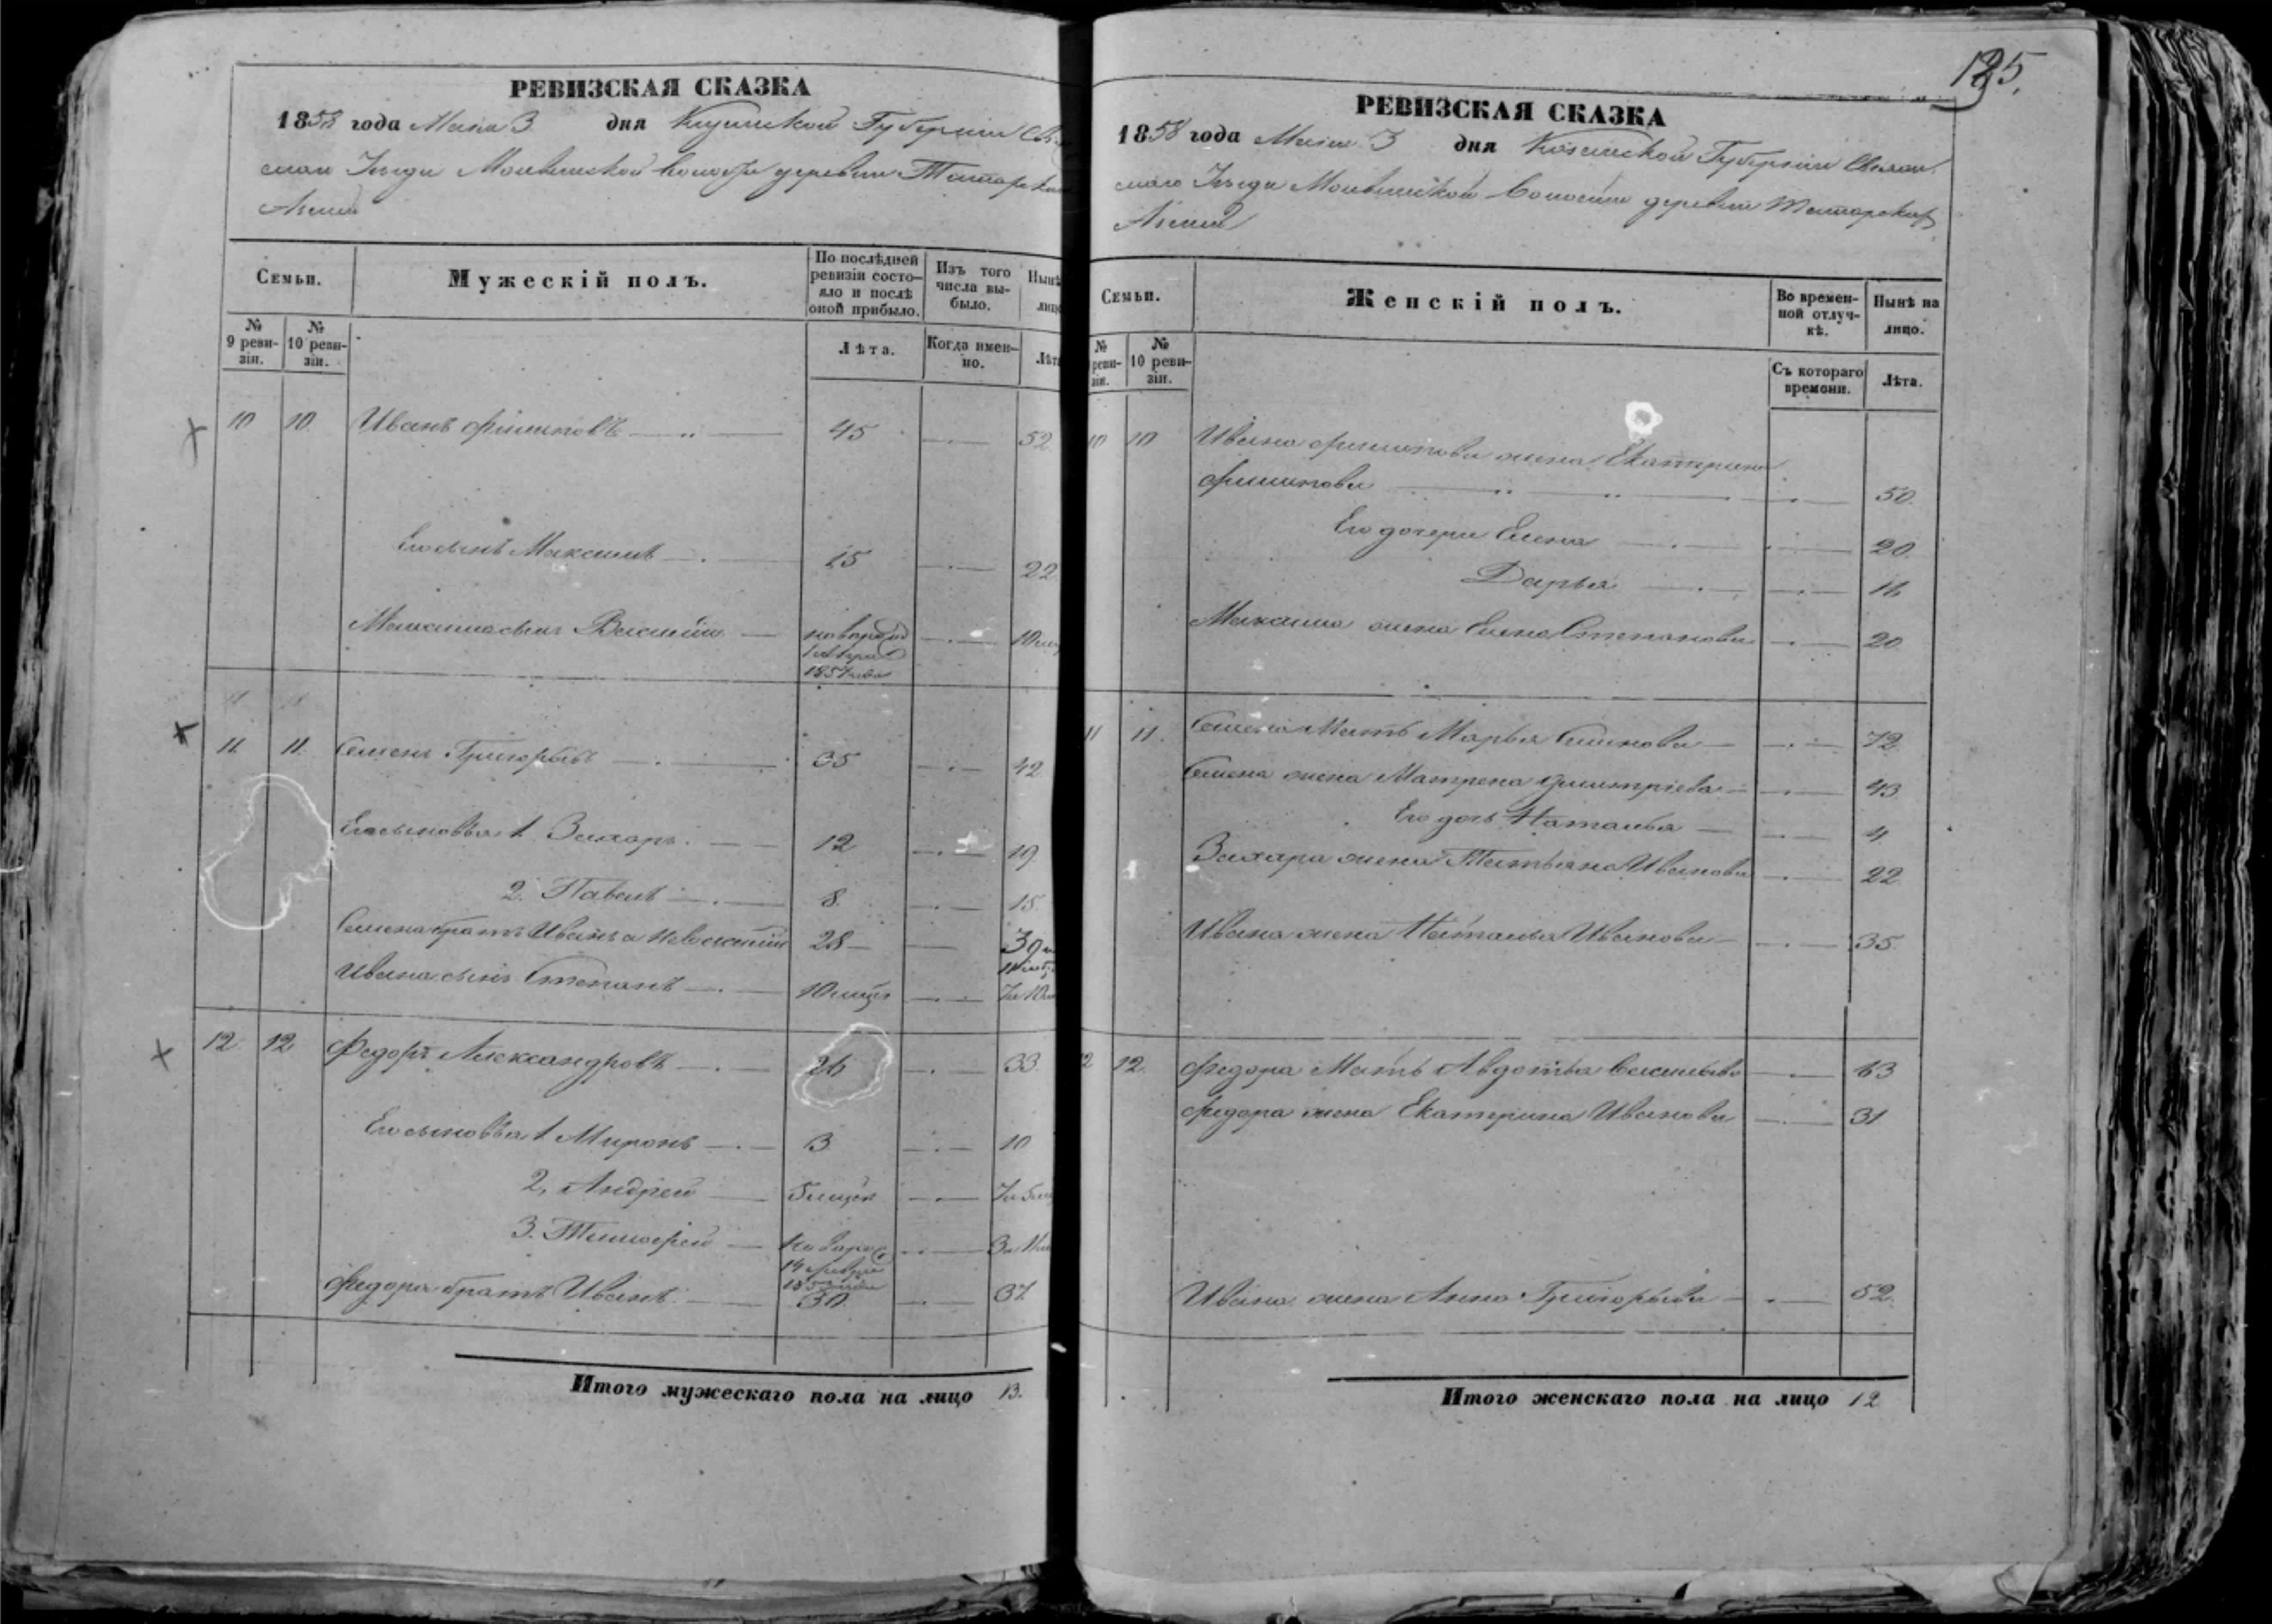 РЕВИЗСКАЯ СКАЗКА
1858 года Мая 3 дня Казанской Губернии Сві
скаго Уѣзда Молвинской волости деревни Татарских
Азелей
Семьи.
Мужескій полъ.
По послѣдней ревизіи состо-яло и послѣ оной прибыло.
Изъ того числа вы-было.
Нынѣ лицо
№ 9 реви-зіи.
№ 10 реви-зіи.
Лѣта.
Когда имен-но.
Лѣта
10 10. Иванъ Филиповъ 45 52
Его сынъ Максимъ 15 22
Максима сынъ Василій новорожд 10
1857
11 11. Семенъ Григорьевъ 35 42
Его сыновья 1. Захаръ 12 19
2. Павелъ 8 15
Семена братъ Иванъ а не Василій 28
Ивана сынъ Степанъ 10 мцъ
12 12 Федоръ Александровъ 26 33
Его сыновья 1 Миронъ 3 10
2, Андрей 5 мцъ
3. Тимофей новорож
14 феврал
Федора братъ Иванъ 30 37
Итого мужескаго пола на лицо 13.
185.
РЕВИЗСКАЯ СКАЗКА
1858 года Мая 3 дня Казанской Губерніи Свіяж
скаго Уѣзда Молвинской Волости деревни Татарских
Азелей
Семьи.
Женскій полъ.
Во времен-ной отлуч-кѣ.
Нынѣ на лицо.
№ реви-зіи.
№ 10 реви-зіи.
Съ котораго времени.
Лѣта.
10 10 Ивана Филипова жена Екатерина
Филипова 50
Его дочери Елена 20
Дарья
Максима жена Елена Степанова 20
11 11. Семена Мать Марья Семенова 72
Семена жена Матрена Дмитріева 43
Его дочь Наталья 4
Захара жена Татьяна Иванова 22
Ивана жена Наталья Иванова 35
12 12. Федора Мать Авдотья Васильева 63
Федора жена Екатерина Иванова 31
Ивана жена Анна Григорьева 52
Итого женскаго пола на лицо 12